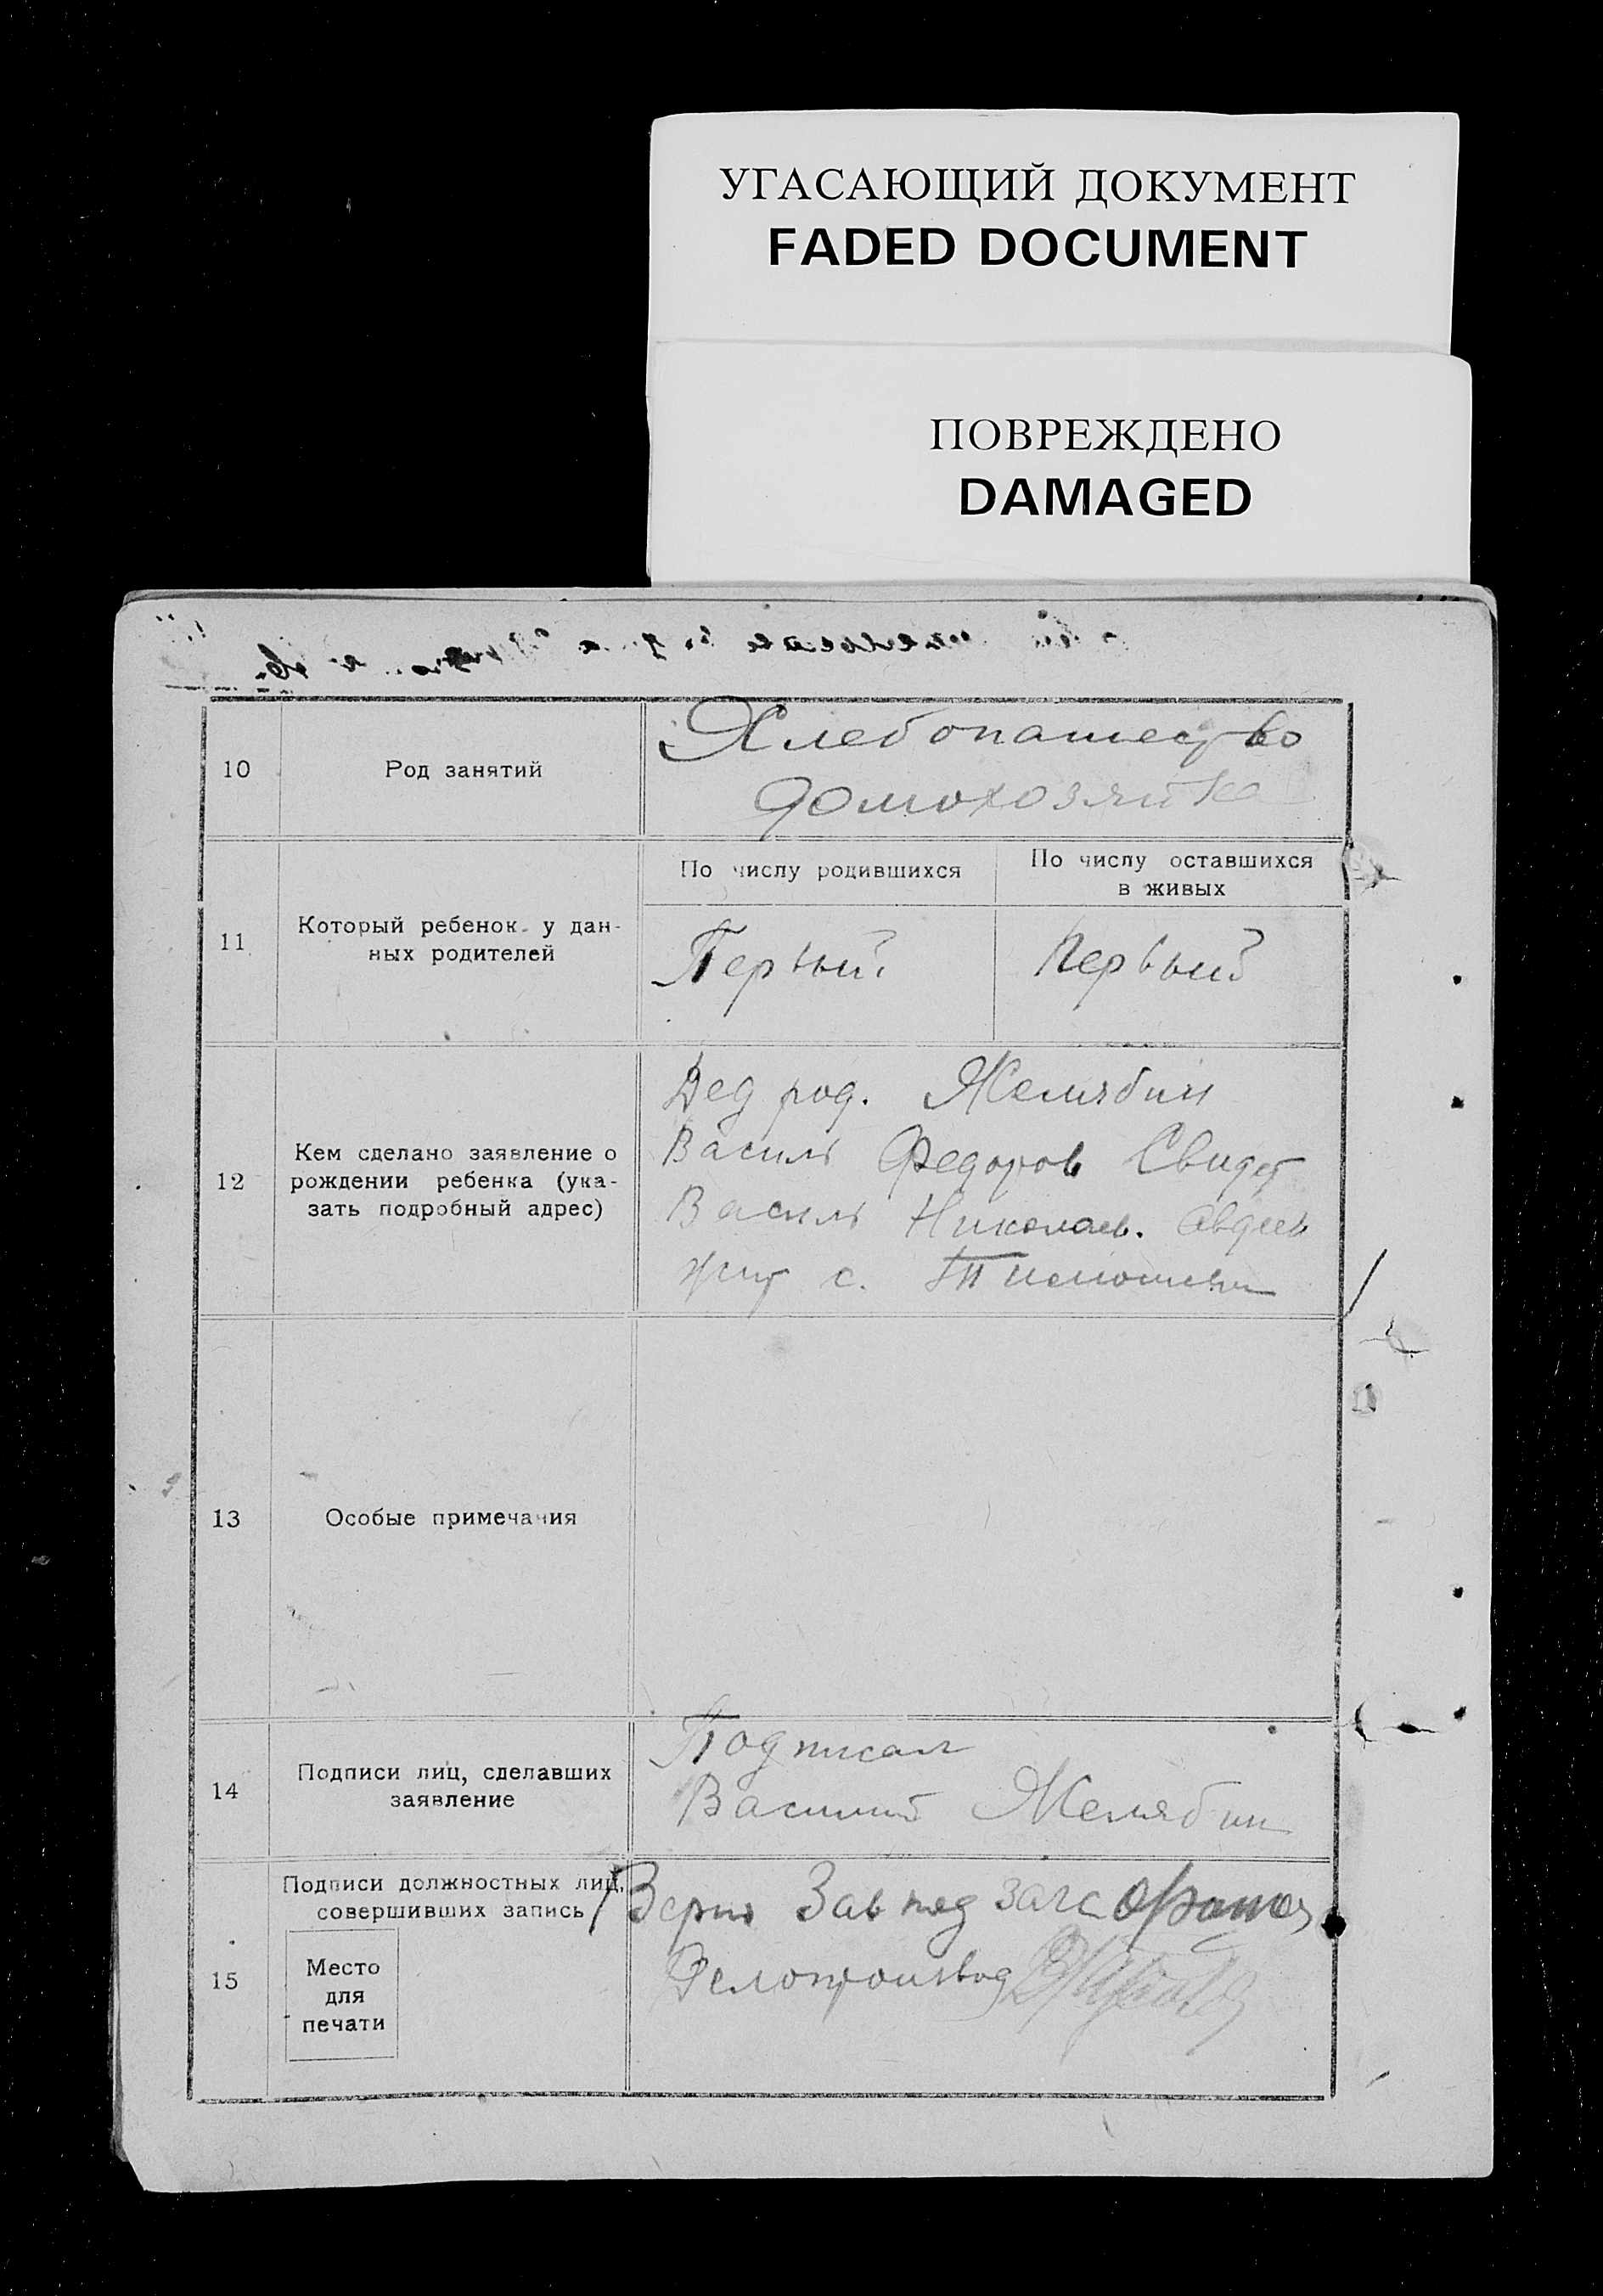 УГАСАЮЩИЙ ДОКУМЕНТ
FADED DOCUMENT
ПОВРЕЖДЕНО
DAMAGED
10
Род занятий
Хлебопашество
домохозяйка
11
Который ребенок у дан-
ных родителей
По числу родившихся
По числу оставшихся
в живых
Первый
Первый
12
Кем сделано заявление о
рождении ребенка (ука-
зать подробный адрес)
Дед род. Желябин
Василь Федоров Свидет
Василь Николаев. Авдеев
жит с.
13
Особые примечания
14
Подписи лиц, сделавших
заявление
Подписал
Василий Желябин
15
Подписи должностных лиц,
совершивших запись
Место
для
печати
Верно Зав под загс
Делопроизвод